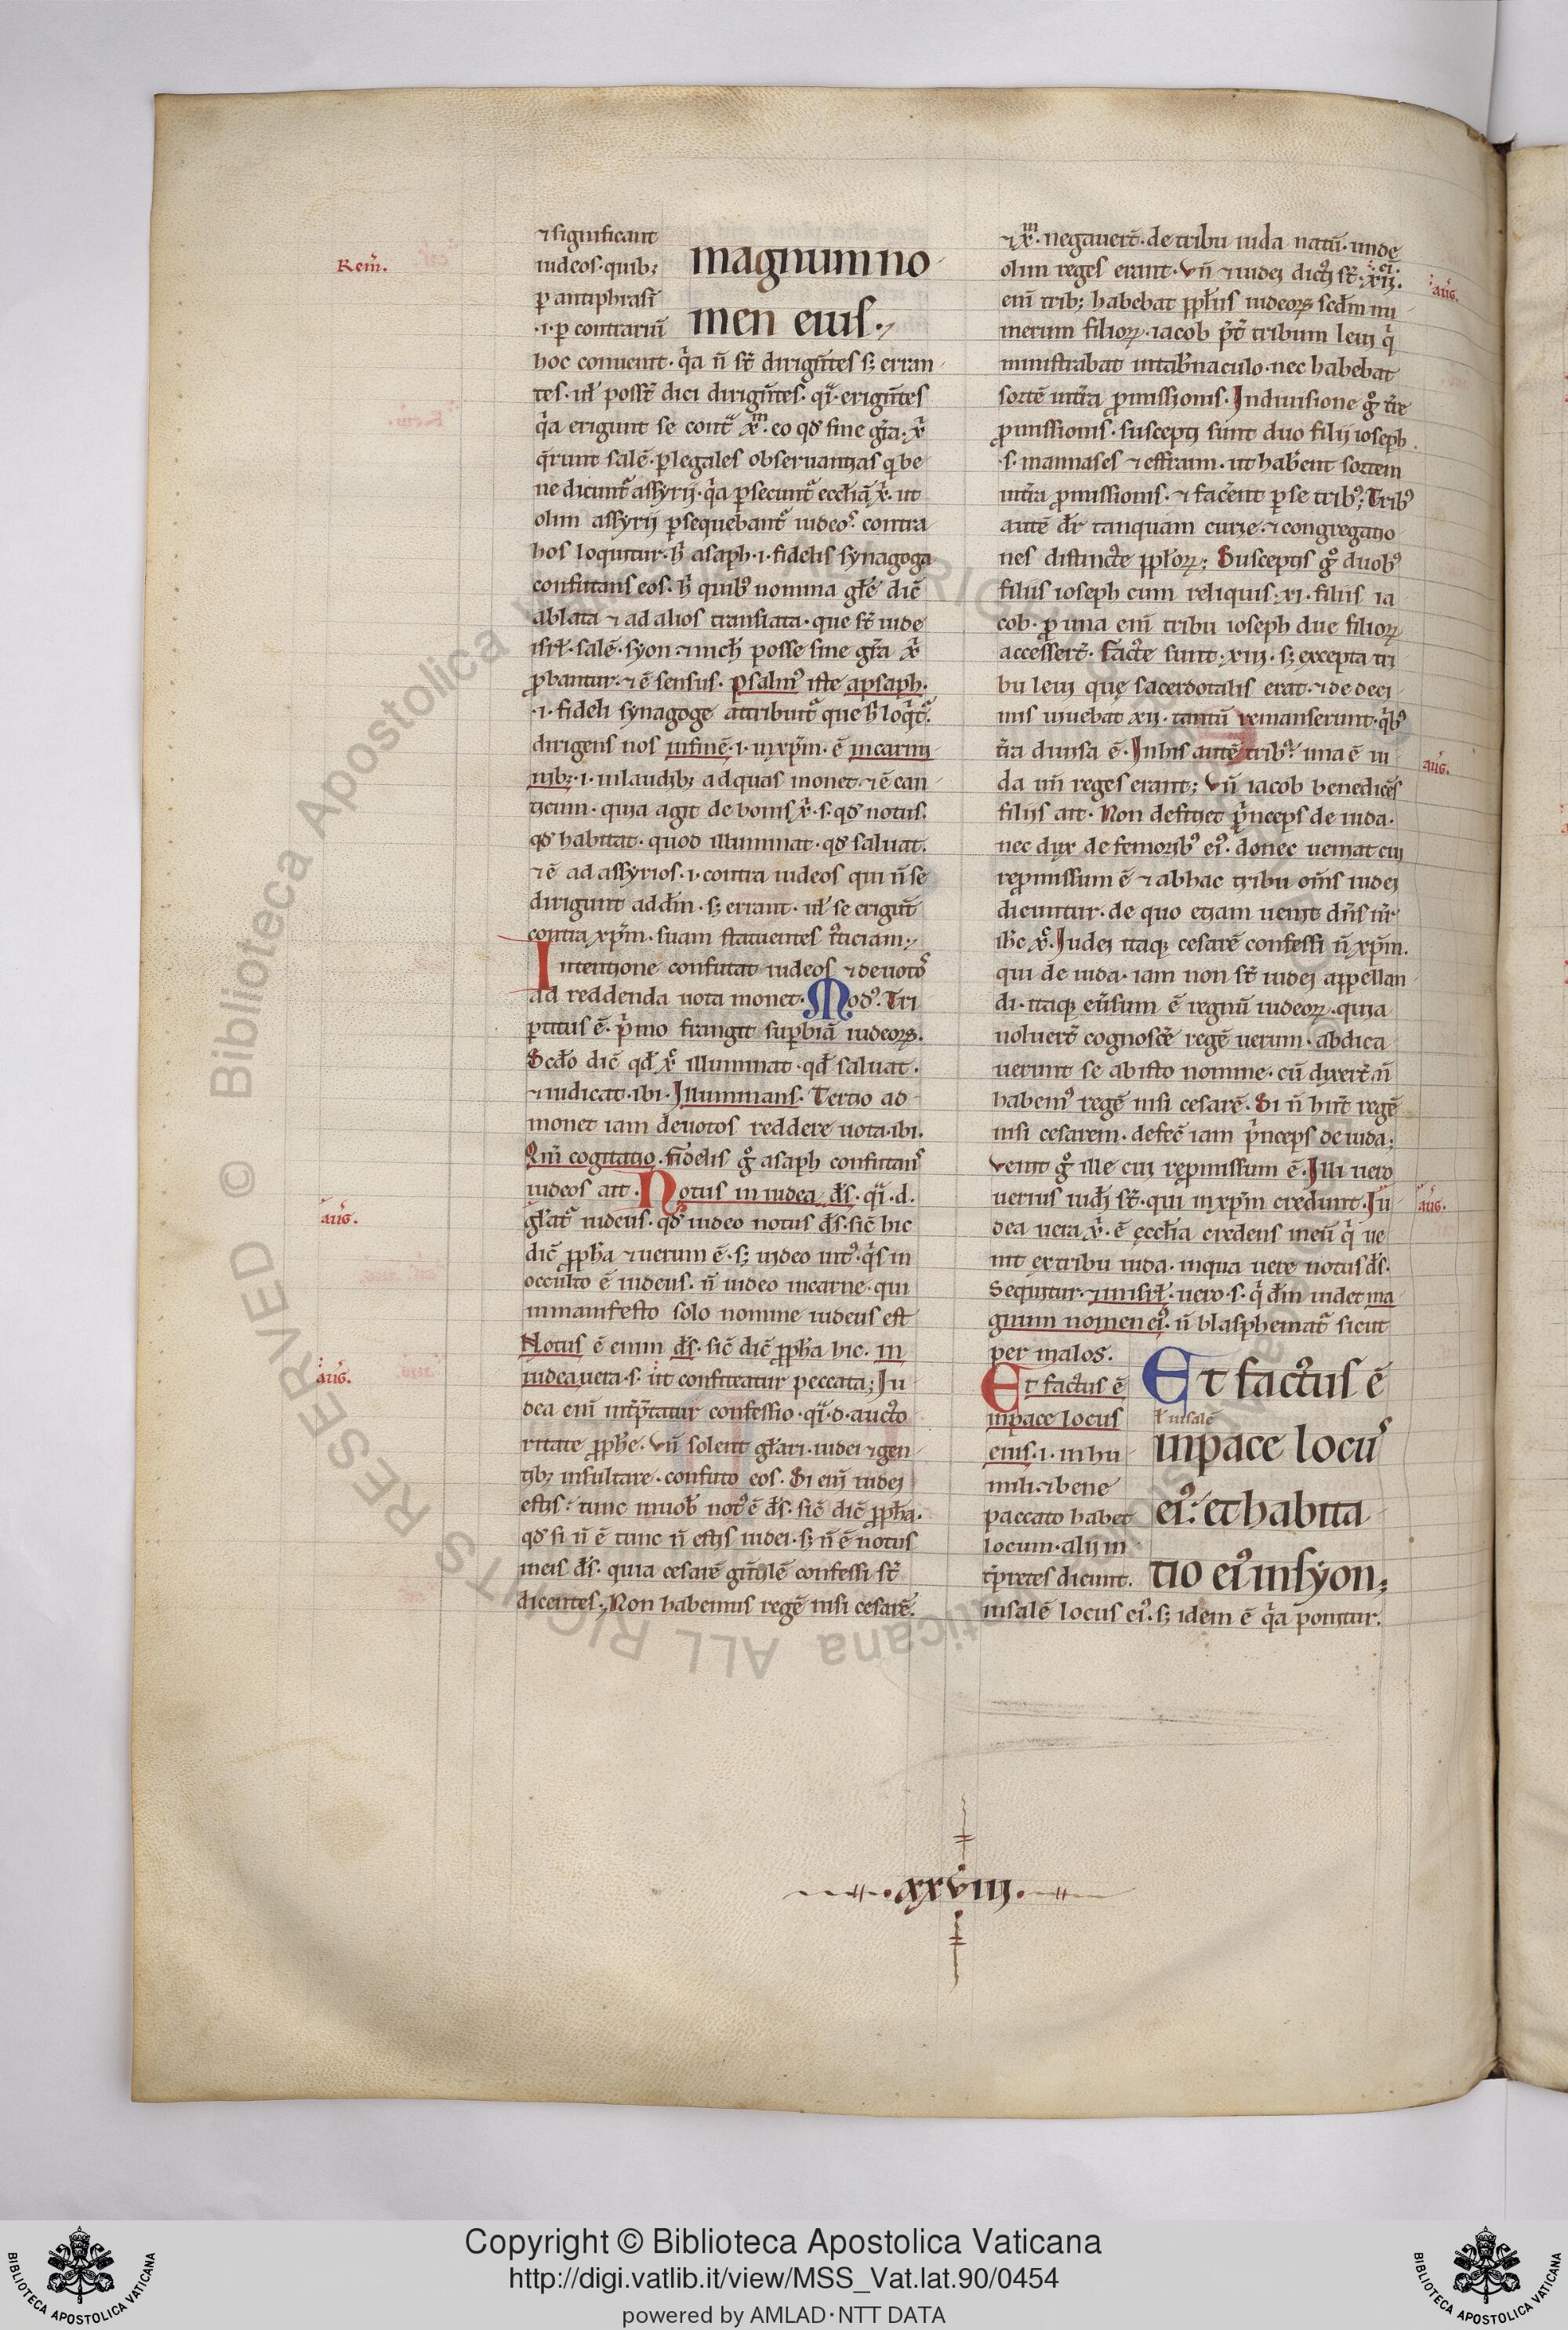 ⁊ significant
iudeos. quib;
ꝑ antiphrasī
.i. ꝑ contrariū
magnum no
men eius.
hoc conuenit. q̇a n̄ st̄ dirigētes s; erran
tes. ul̓ possēt dici dirigētes. q̈i. erigētes
q̇a erigunt se cont̄ xͫ. eo qđ sine gr̄a. x̓
q̄runt salē. ꝑ legales obseruantias q̇ be
ne dicunt᷑ assyrij. q̇a ꝑsecunt᷑ eccl̄iā x̓. ut
olim assyrij ꝑsequebant᷑ iudeos. contra
hos loquitur. h̓ asaph .i. fidelis synagoga
confutans eos. h̓ quib⁹ nomina gl̄e dic̄
ablata ⁊ ad alios translata. que st̄ iude
isrl̓. salē. syon. ⁊ nich̓ posse sine gr̄a x̓
ꝓbantur. ⁊ ē sensus. psalm⁹ iste ap̄ saph.
.i. fideli synagoge attribuit᷑ que h̓ loq̇t᷑.
dirigens nos infinē .i. in xp̄m. ē in carmi
nib; .i. in laudib; ad quas monet. ⁊ ē can
ticum. quia agit de bonis x̓. s. qđ notus.
qđ habitat. quod illuminat. qđ saluat.
⁊ ē ad assyrios .i. contra iudeos qui n̄ se
dirigunt ad dm̄. s; errant. ul̓ se erigūt
contra xp̄m. suam statuentes iusticiam.
Intentione confutat iudeos ⁊ deuotos
ad reddenda uota monet. Mod⁹. Tri
ꝑtitus ē. p̓mo frangit suꝑbiā iudeoꝝ.
Scđo dic̄ qđ x̓ illuminat. qđ saluat.
⁊ iudicat. ibi. Illuminans. Tertio ad
monet iam deuotos reddere uota. ibi.
Qm̄ cogitatio. fidelis g᷑ asaph confutans
iudeos ait. Notus in iudea ds̄. q̈i. d.
gl̄at᷑ iudeus. qđ iudeo notus ds̄. sic̄ hic
dic̄ ꝓph̄a ⁊ uerum ē. s; iudeo int⁹. q̇s in
occulto ē iudeus. n̄ iudeo in carne. qui
in manifesto solo nomine iudeus est
Notus ē enim ds̄. sic̄ dic̄ ꝓph̄a hic. in
iudea uera. s. ut confiteatur peccata; Iu
dea enī int̄p̄tatur confessio. q̈i. d. aucto
ritate ꝓph̄e. Vn̄ solent gl̄ari. iudei ⁊ gen
tib; insultare. confuto eos. Si enī iudei
estis. tunc in uob̄ not⁹ ē ds̄. sic̄ dic̄ ꝓph̄a.
qđ si n̄ ē tunc n̄ estis iudei. s; n̄ ē notus
in eis ds̄. quia cesarē gentilē confessi st̄
dicentes. Non habemus regē nisi cesarē.
⁊ xͫ. negauert̄. de tribu iuda natū. unde
olim reges erant. Vn̄ ⁊ iudei dicti st̄. xii.
enī trib; habebat ppl̄us iudeoꝝ scđm nu
merum filioꝝ. iacob p̄t tribum leui q̇
ministrabat in tab̄naculo. nec habebat
sortē in t̄ra ꝓmissionis. In diuisione g᷑ t̄re
ꝓmissionis. suscepti sunt duo filii ioseph.
.s. mannases ⁊ effraim. ut hab̄ent sortem
in t̄ra ꝓmissionis. ⁊ fac̄ent ꝑ se trib⁹; Trib⁹
autē dr̄ tanquam curie. ⁊ congregatio
nes distincte ppl̄oꝝ; Susceptis g᷑ duob⁹
filiis ioseph cum reliquis. xi. filiis ia
cob. ꝓ una enī tribu ioseph due filioꝝ
accessert̄. facte sunt. xiii. s; excepta tri
bu leui quę sacerdotalis erat. ⁊ de deci
mis uiuebat xii. tantū remanserunt. q̇b⁹
t̄ra diuisa ē. In his autē trib⁹. una ē iu
da un̄ reges erant; Vn̄ iacob benedicēs
filiis ait. Non deficiet p̓nceps de iuda.
nec dux de femorib⁹ ei⁹. donec ueniat cui
repmissum ē ⁊ ab hac tribu om̄s iudei
dicuntur. de quo etiam uenit dn̄s nr̄.
ih̄c x̓. Iudei itaq; cesarē confessi n̄ xp̄m.
qui de iuda. iam non st̄ iudei appellan
di. itaq; eūsum ē regnū iudeoꝝ. quia
noluert̄ cognosc̄e regē uerum. abdica
uerunt se ab isto nomine. cū dixert̄. n̄
habem⁹ regē nisi cesarē. Si n̄ hn̄t regē
nisi cesarem. defec̄ iam p̓nceps de iuda;
Venit g᷑ ille cui repmissum ē. Illi uero
uerius iud̄ st̄. qui in xp̄m credunt. Iu
dea uera x̓. ē ęccl̄ia credens in eū q̇ ue
nit ex tribu iuda. in qua uere notus ds̄.
Sequitur. ⁊ in isrl̓. uero. s. q̇ dm̄ uidet ma
gnum nomen ei⁹. n̄ blasphemat᷑ sicut
per malos.
Et factus ē
in pace locus
eius .i. in hu
mili. ⁊ bene
paccato habet
locum. alij in
t̄p̄retes dicunt.
Et factus ē
ł in salē
in pace locus
ei⁹. et habita
tio ei⁹ in syon;
in salē locus ei⁹. s; idem ē q̇a ponitur.
Rem̄.
aug̃.
aug̃.
aug̃.
aug̃.
aug̃.
.xxviii.
© Biblioteca Apostolica Vaticana ALL RIGHTS RESERVED
Copyright © Biblioteca Apostolica Vaticana
http://digi.vatlib.it/view/MSS_Vat.lat.90/0454
powered by AMLAD·NTT DATA
BIBLIOTECA APOSTOLICA VATICANA
BIBLIOTECA APOSTOLICA VATICANA